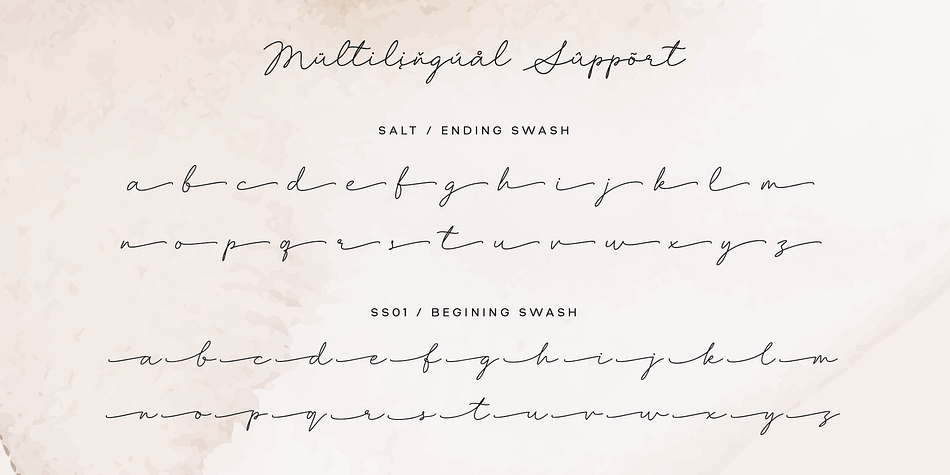 Mūltilįňgúål Sûppõrt
SALT / ENDING SWASH
a b c d e f g h i j k l m
n o p q r s t u v w x y z
SS01 / BEGINING SWASH
a b c d e f g h i j k l m
n o p q r s t u v w x y z